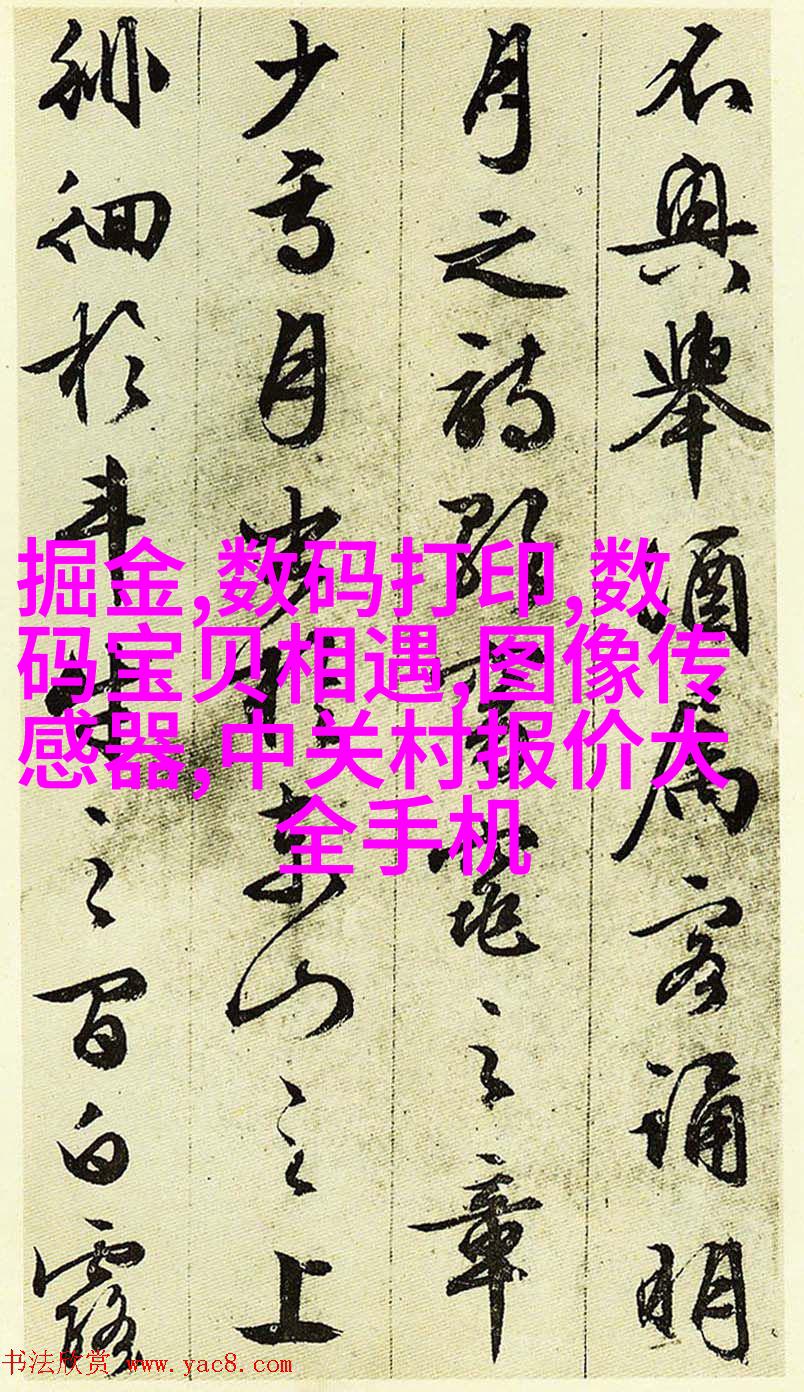 不興舉酒属客誦明
月之詩歌窈窕之章
少焉月出於東山之上
徘徊於斗牛之間白露
掘金,数码打印,数
码宝贝相遇,图像传
感器,中关村报价大
全手机
书法欣赏 www.yac8.com